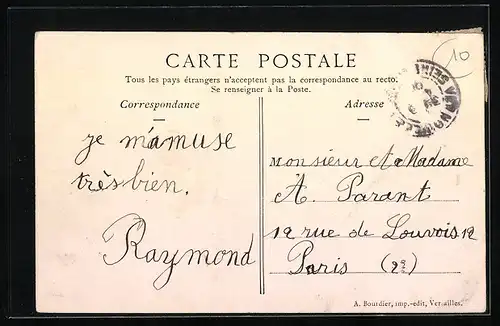 10
CARTE POSTALE
Tous les pays étrangers n'acceptent pas la correspondance au recto.
Se renseigner à la Poste.
Correspondance
Adresse
je m'amuse
très bien.
Raymond
Monsieur et Madame
A. Parant
12 rue de Louvois 12
Paris (2e)
A. Bourdier, imp.-édit, Versailles.